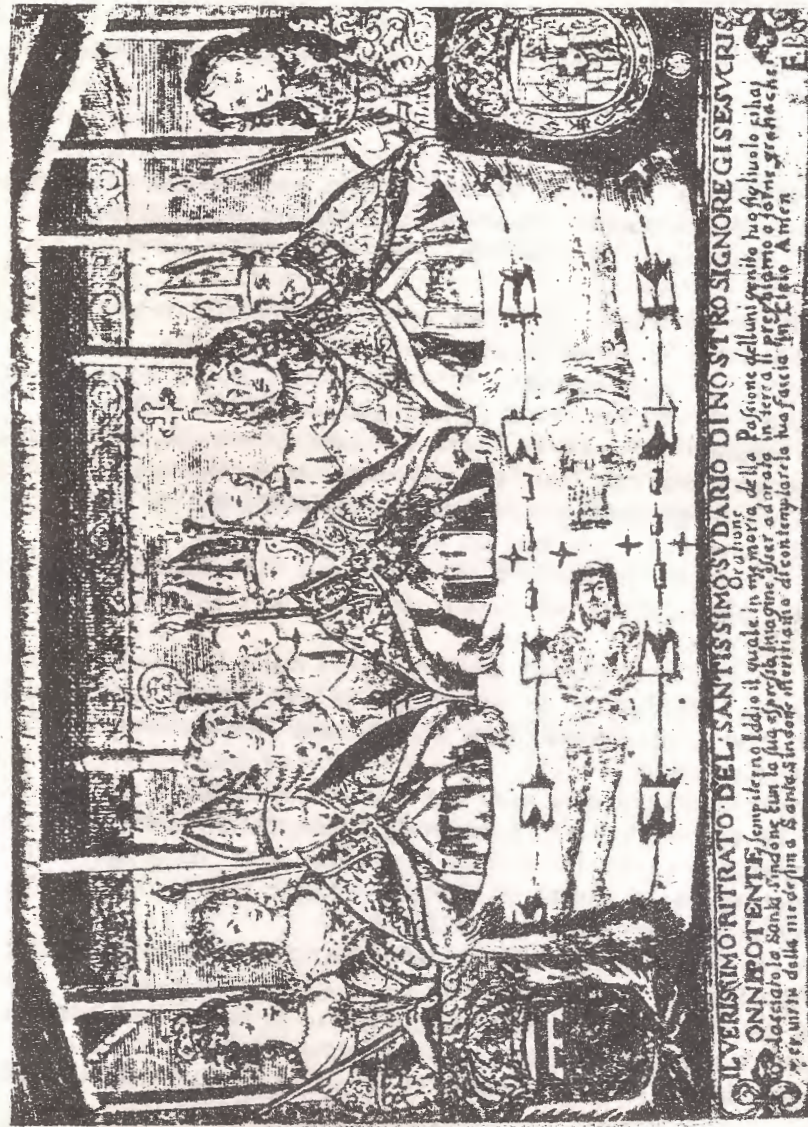 IL VERISSIMO RITRATO DEL SANTISSIMO SVDARIO DI NOSTRO SIGNORE GISESV CRIS
Oratione
ONNIPOTENTE sempiterno Iddio il quale in memoria della Pasione dell uni genito tuo figliuolo ci hai
lasciato la Santa Sindone cun la sua espresa Imagine per adorala in terra ti preghiamo a farne gratia che
per uirtu della medesima Santa Sindone meritiamo di contemplare la tua faccia in Cielo Amen
F. B.